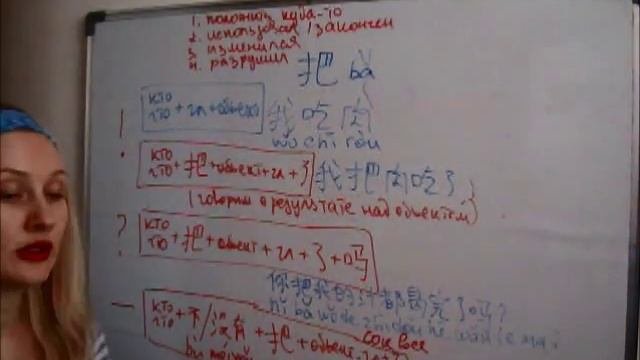 1. положил куда-то
2. использовал /закончен
3. изменился
4. разрушил
把 bǎ
кто
что + гл + объект 我 吃 肉
wǒ chī ròu
! кто
что + 把 + объект + гл + 了 我 把 肉 吃 了
(говорим о результате над объектом)
? кто
что + 把 + объект + гл + 了 + 吗
你把我的汁都喝完了吗?
nǐ bǎ wǒ de zhī dōu hē wán le ma
— кто
что + 不/没有 + 把 + объект
сок все